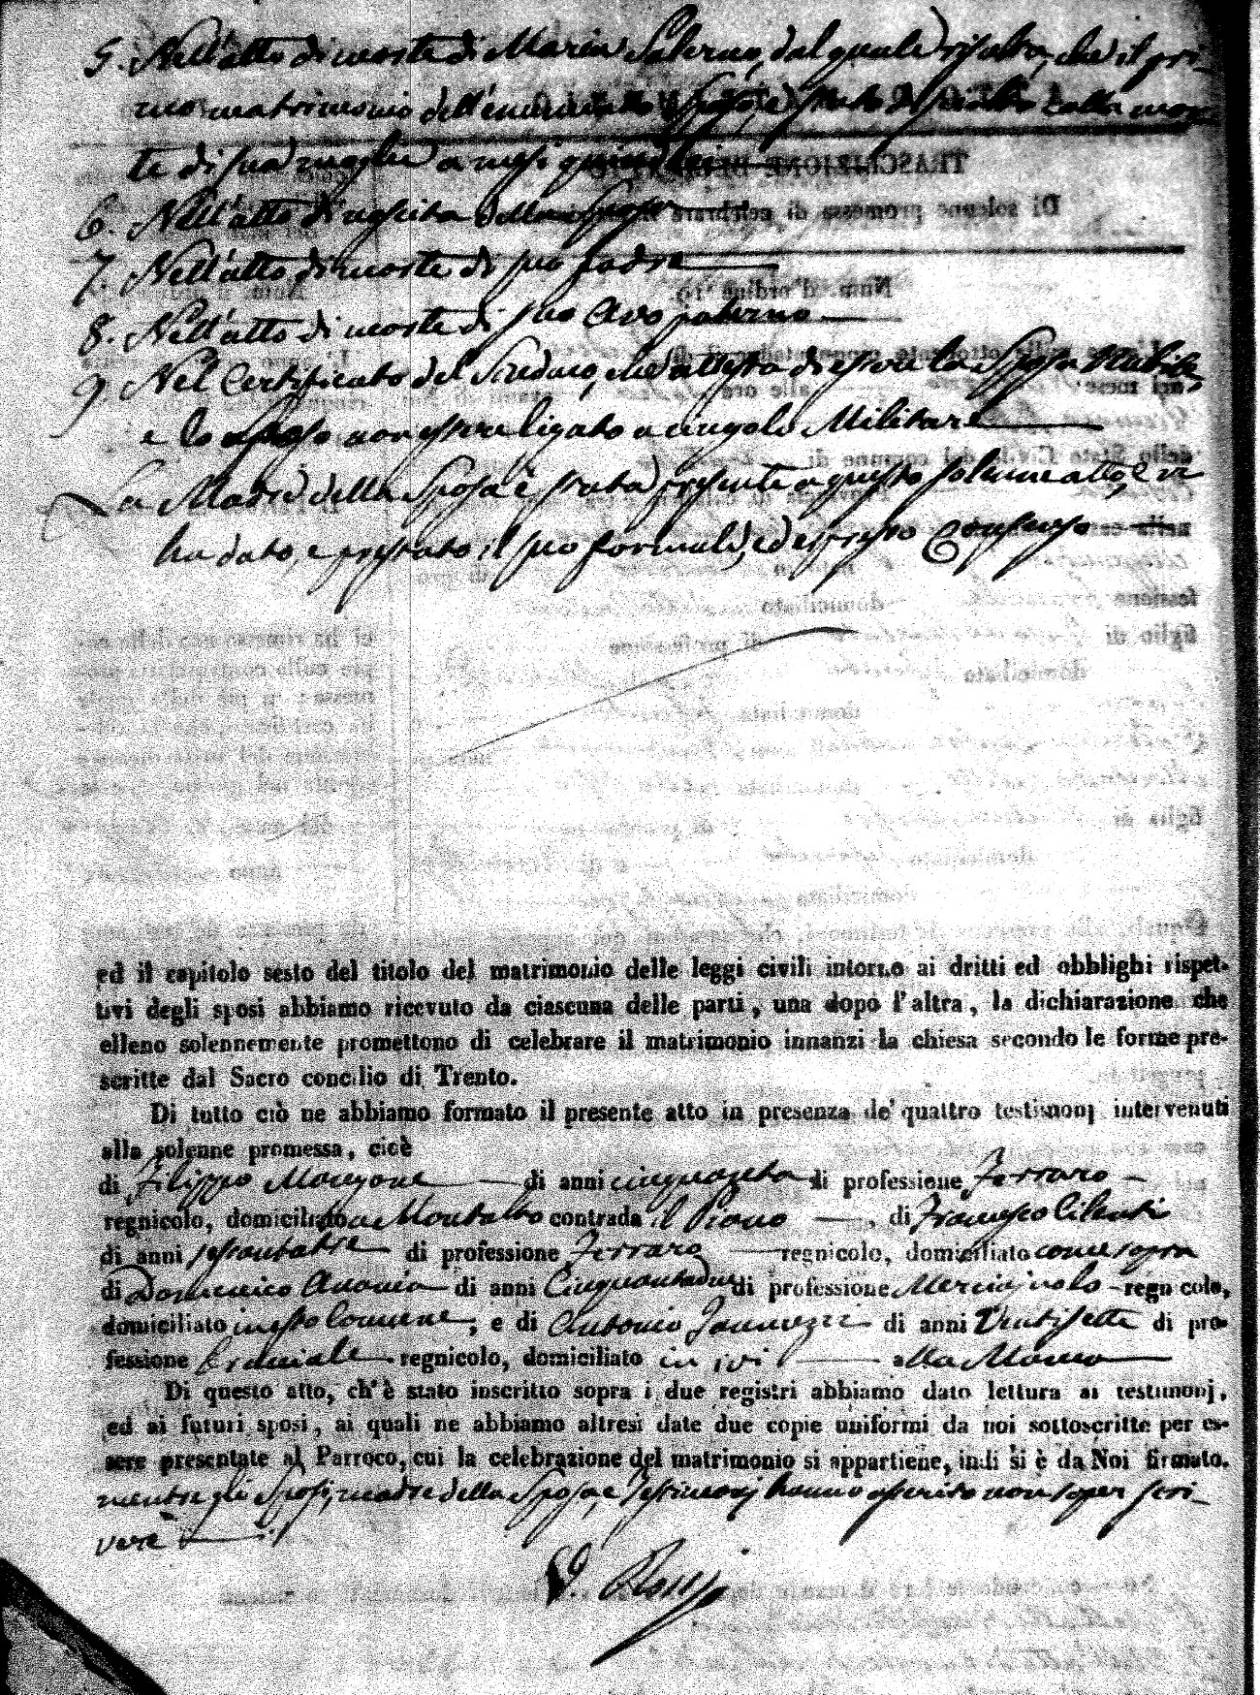 5. Nell'atto di morte di Maria Salerno, dal quale risulta, che il pri-
mo matrimonio dell'enunciato Sposo, è stato sciolto colla mor-
te di sua moglie a mesi quindici
6. Nell'atto di nascita della Sposa
7. Nell'atto di morte di suo padre
8. Nell'atto di morte di suo Avo paterno
9. Nel Certificato del Sindaco, che attesta di essere la Sposa Nubile,
e lo Sposo non essere ligato a vincolo Militare
La Madre della Sposa è stata presente a questo solenne atto, e vi
ha dato, e prestato il suo formale, ed espresso Consenso
ed il capitolo sesto del titolo del matrimonio delle leggi civili intorno ai dritti ed obblighi rispet-
tivi degli sposi abbiamo ricevuto da ciascuna delle parti, una dopo l'altra, la dichiarazione che
elleno solennemente promettono di celebrare il matrimonio innanzi la chiesa secondo le forme pre-
scritte dal Sacro concilio di Trento.
Di tutto ciò ne abbiamo formato il presente atto in presenza de' quattro testimonj intervenuti
alla solenne promessa, cioè
di Filippo Mangone di anni cinquanta di professione Ferraro
regnicolo, domiciliato a Montalto contrada il Piano, di Francesco Cilenti
di anni sessantatre di professione Ferraro regnicolo, domiciliato come sopra
di Domenico di anni Cinquantadue di professione regnicolo,
domiciliato in esto Comune, e di Antonio Iannuzzi di anni Ventisette di pro-
fessione Bracciale regnicolo, domiciliato in ivi
Di questo atto, ch'è stato inscritto sopra i due registri abbiamo dato lettura ai testimonj,
ed ai futuri sposi, ai quali ne abbiamo altresì date due copie uniformi da noi sottoscritte per es-
sere presentate al Parroco, cui la celebrazione del matrimonio si appartiene, indi si è da Noi firmato.
mentre gli Sposi, madre della Sposa, e Testimonj hanno asserito non saper scri-
vere